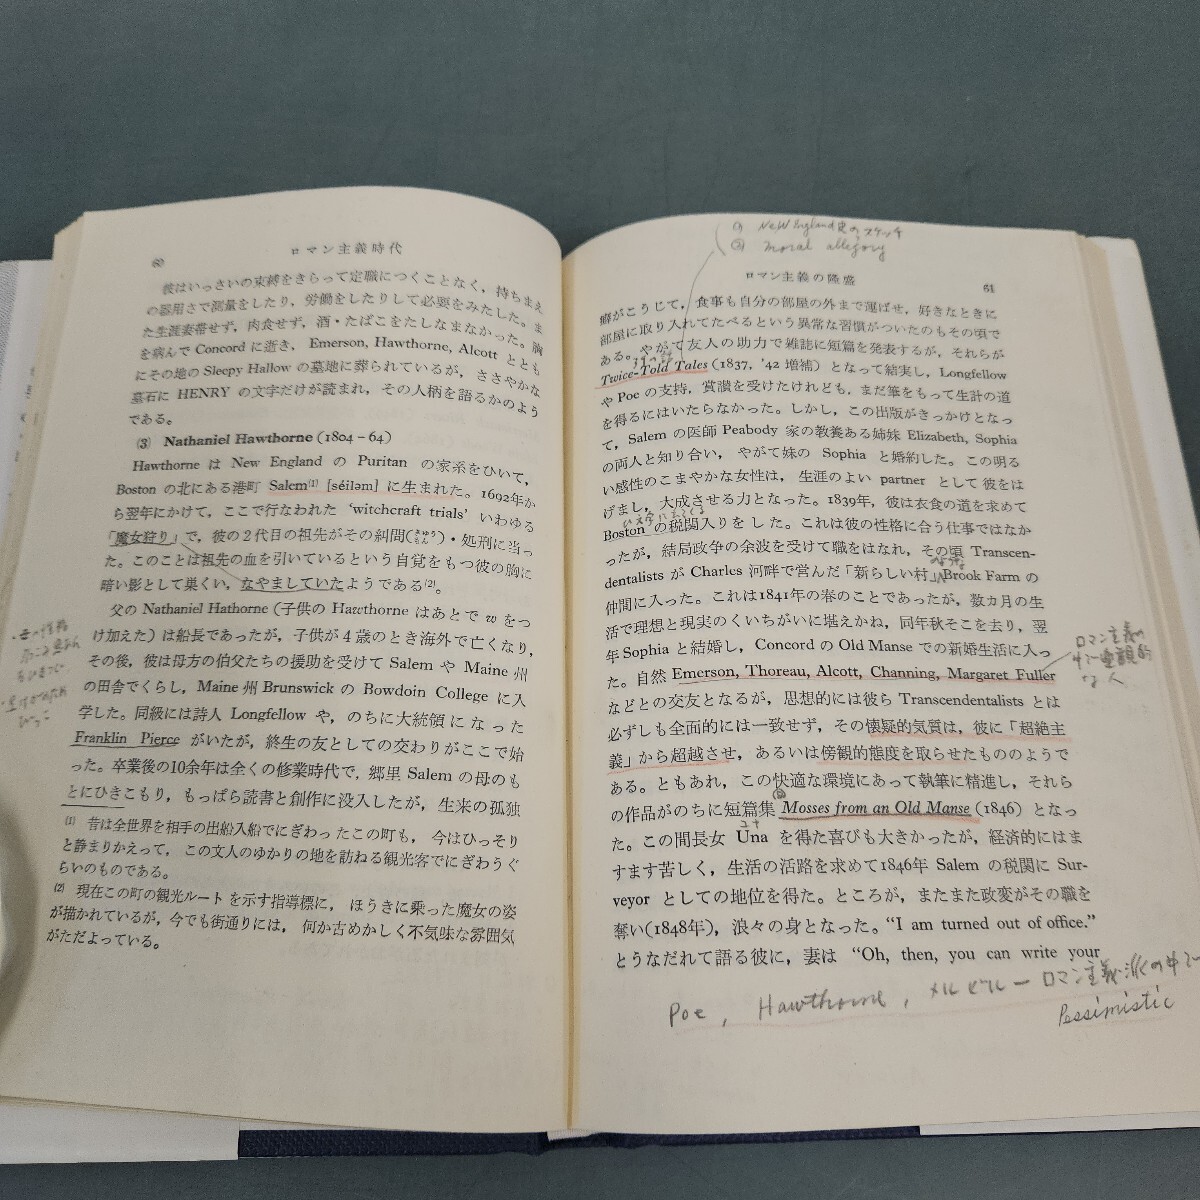 60
ロマン主義時代
彼はいっさいの束縛をきらって定職につくことなく，持ちまえ
の器用さで測量をしたり，労働をしたりして必要をみたした。ま
た生涯妻帯せず，肉食せず，酒・たばこをたしなまなかった。胸
を病んで Concord に逝き， Emerson, Hawthorne, Alcott ととも
にその地の Sleepy Hallow の墓地に葬られているが，ささやかな
墓石に HENRY の文字だけが読まれ，その人柄を語るかのよう
である。
(3) Nathaniel Hawthorne (1804–64)
Hawthorne は New England の Puritan の家系をひいて，
Boston の北にある港町 Salem(1) [séiləm] に生まれた。1692年か
ら翌年にかけて，ここで行なわれた 'witchcraft trials' いわゆる
「魔女狩り」で，彼の2代目の祖先がその糾問(きゅうもん)・処刑に当っ
た。このことは祖先の血を引いているという自覚をもつ彼の胸に
暗い影として巣くい，なやましていたようである(2)。
父の Nathaniel Hathorne (子供の Hawthorne はあとで w をつ
け加えた) は船長であったが，子供が4歳のとき海外で亡くなり，
その後，彼は母方の伯父たちの援助を受けて Salem や Maine 州
の田舎でくらし，Maine 州 Brunswick の Bowdoin College に入
学した。同級には詩人 Longfellow や，のちに大統領になった
Franklin Pierce がいたが，終生の友としての交わりがここで始
った。卒業後の10余年は全くの修業時代で，郷里 Salem の母のも
とにひきこもり，もっぱら読書と創作に没入したが，生来の孤独
(1) 昔は全世界を相手の出船入船でにぎわったこの町も，今はひっそり
と静まりかえって，この文人のゆかりの地を訪ねる観光客でにぎわうぐ
らいのものである。
(2) 現在この町の観光ルートを示す指導標に，ほうきに乗った魔女の姿
が描かれているが，今でも街通りには，何か古めかしく不気味な雰囲気
がただよっている。
① New England 史のスケッチ
② moral allegory
ロマン主義の隆盛
61
癖がこうじて，食事も自分の部屋の外まで運ばせ，好きなときに
部屋に取り入れてたべるという異常な習慣がついたのもその頃で
ある。やがて友人の助力で雑誌に短篇を発表するが，それらが
Twice-Told Tales (1837, '42 増補) となって結実し，Longfellow
や Poe の支持，賞讃を受けたけれども，まだ筆をもって生計の道
を得るにはいたらなかった。しかし，この出版がきっかけとなっ
て，Salem の医師 Peabody 家の教養ある姉妹 Elizabeth, Sophia
の両人と知り合い，やがて妹の Sophia と婚約した。この明る
い感性のこまやかな女性は，生涯のよい partner として彼をは
げまし，大成させる力となった。1839年，彼は衣食の道を求めて
Boston の税関入りをした。これは彼の性格に合う仕事ではなか
ったが，結局政争の余波を受けて職をはなれ，その頃 Transcen-
dentalists が Charles 河畔で営んだ「新らしい村」Brook Farm の
仲間に入った。これは1841年の春のことであったが，数ヵ月の生
活で理想と現実のくいちがいに堪えかね，同年秋そこを去り，翌
年 Sophia と結婚し，Concord の Old Manse での新婚生活に入っ
た。自然 Emerson, Thoreau, Alcott, Channing, Margaret Fuller
などとの交友となるが，思想的には彼ら Transcendentalists とは
必ずしも全面的には一致せず，その懐疑的気質は，彼に「超絶主
義」から超越させ，あるいは傍観的態度を取らせたもののようで
ある。ともあれ，この快適な環境にあって執筆に精進し，それら
の作品がのちに短篇集 Mosses from an Old Manse (1846) となっ
ユナ
た。この間長女 Una を得た喜びも大きかったが，経済的にはま
すます苦しく，生活の活路を求めて1846年 Salem の税関に Sur-
veyor としての地位を得た。ところが，またまた政変がその職を
奪い(1848年)，浪々の身となった。"I am turned out of office."
とうなだれて語る彼に，妻は "Oh, then, you can write your
ロマン主義の
中で楽観的
な人
Poe, Hawthorne, メルビルーロマン主義派の中で
Pessimistic